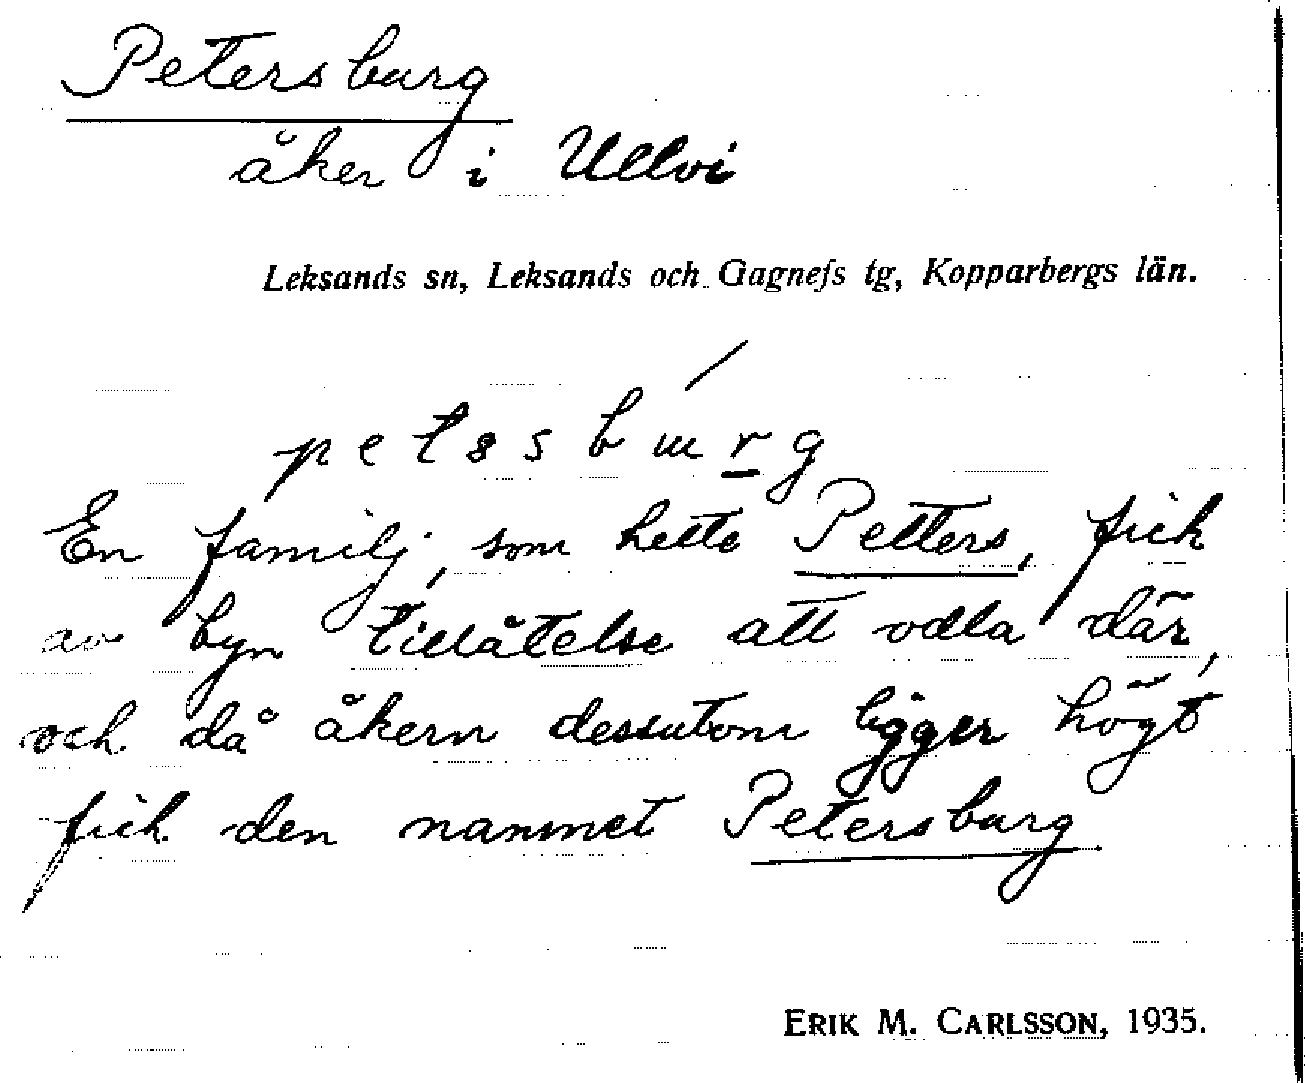 Petersburg
åker i Ullvi
Leksands sn, Leksands och Gagnefs tg, Kopparbergs län.
En familj, som hette Petters, fick
av byn tillåtelse att odla där,
och då åkern dessutom ligger högt
fick den namnet Petersburg
ERIK M. CARLSSON, 1935.